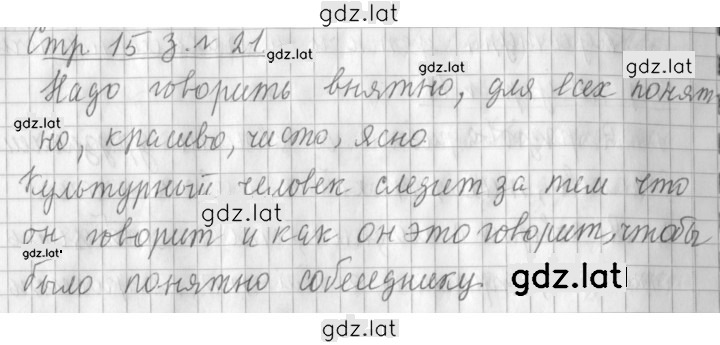 gdz.lat
Стр 15 з. н 21.
gdz.lat
Надо говорить внятно, для всех понят-
gdz.lat
gdz.lat
gdz.lat
но, красиво, чисто, ясно.
Культурный человек следит за тем что
gdz.lat
он говорит и как он это говорит, чтобы
gdz.lat
было понятно собеседнику.
gdz.lat
gdz.lat